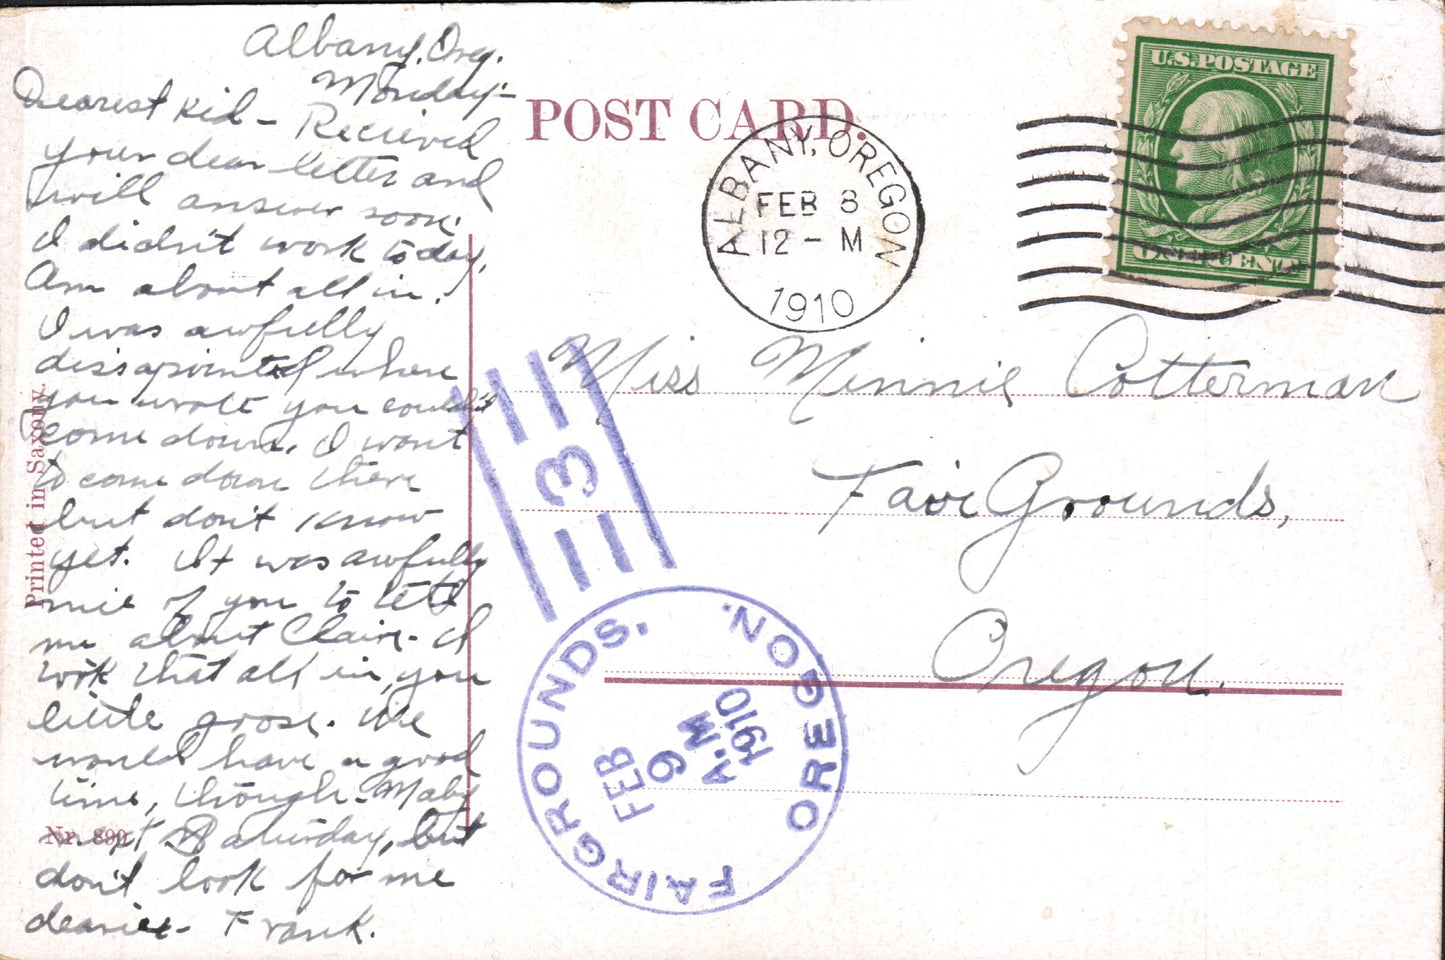 Albany, Oreg.
Monday:-
Dearest Kid - Recieved
your dear letter and
will answer soon.
I didn't work today,
Am about all in.
I was awfully
dissapointed when
you wrote you could't
come down. I want
to come down there
but don't know
yet. It was awfully
nice of you to tell
me about Claire - I
took that all in, you
little goose. We
would have a good
time, though - Maby
next Saturday, but
don't look for me
dearie - Frank.
Printed in Saxony.
Nr. 890
POST CARD.
ALBANY, OREGON
FEB 8
12 - M
1910
U.S. POSTAGE
ONE CENT
Miss Minnie Cotterman
Fair Grounds,
Oregon.
3
FAIRGROUNDS, OREGON.
FEB
9
A.M
1910